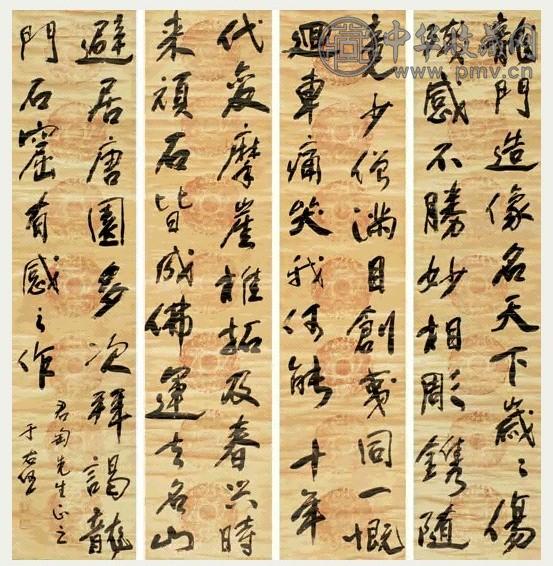 中华收藏网
www.pmv.cn
龍門造像名天下歲々傷
殘感不勝妙相彫鐫隨
竟少僧滿目創夷同一慨
迴車痛哭我何能十年
代變摩崖椎拓及春興時
来頑石皆成佛運去名山
避居唐園多次拜謁龍
門石窟有感之作
君匋先生正之
于右任